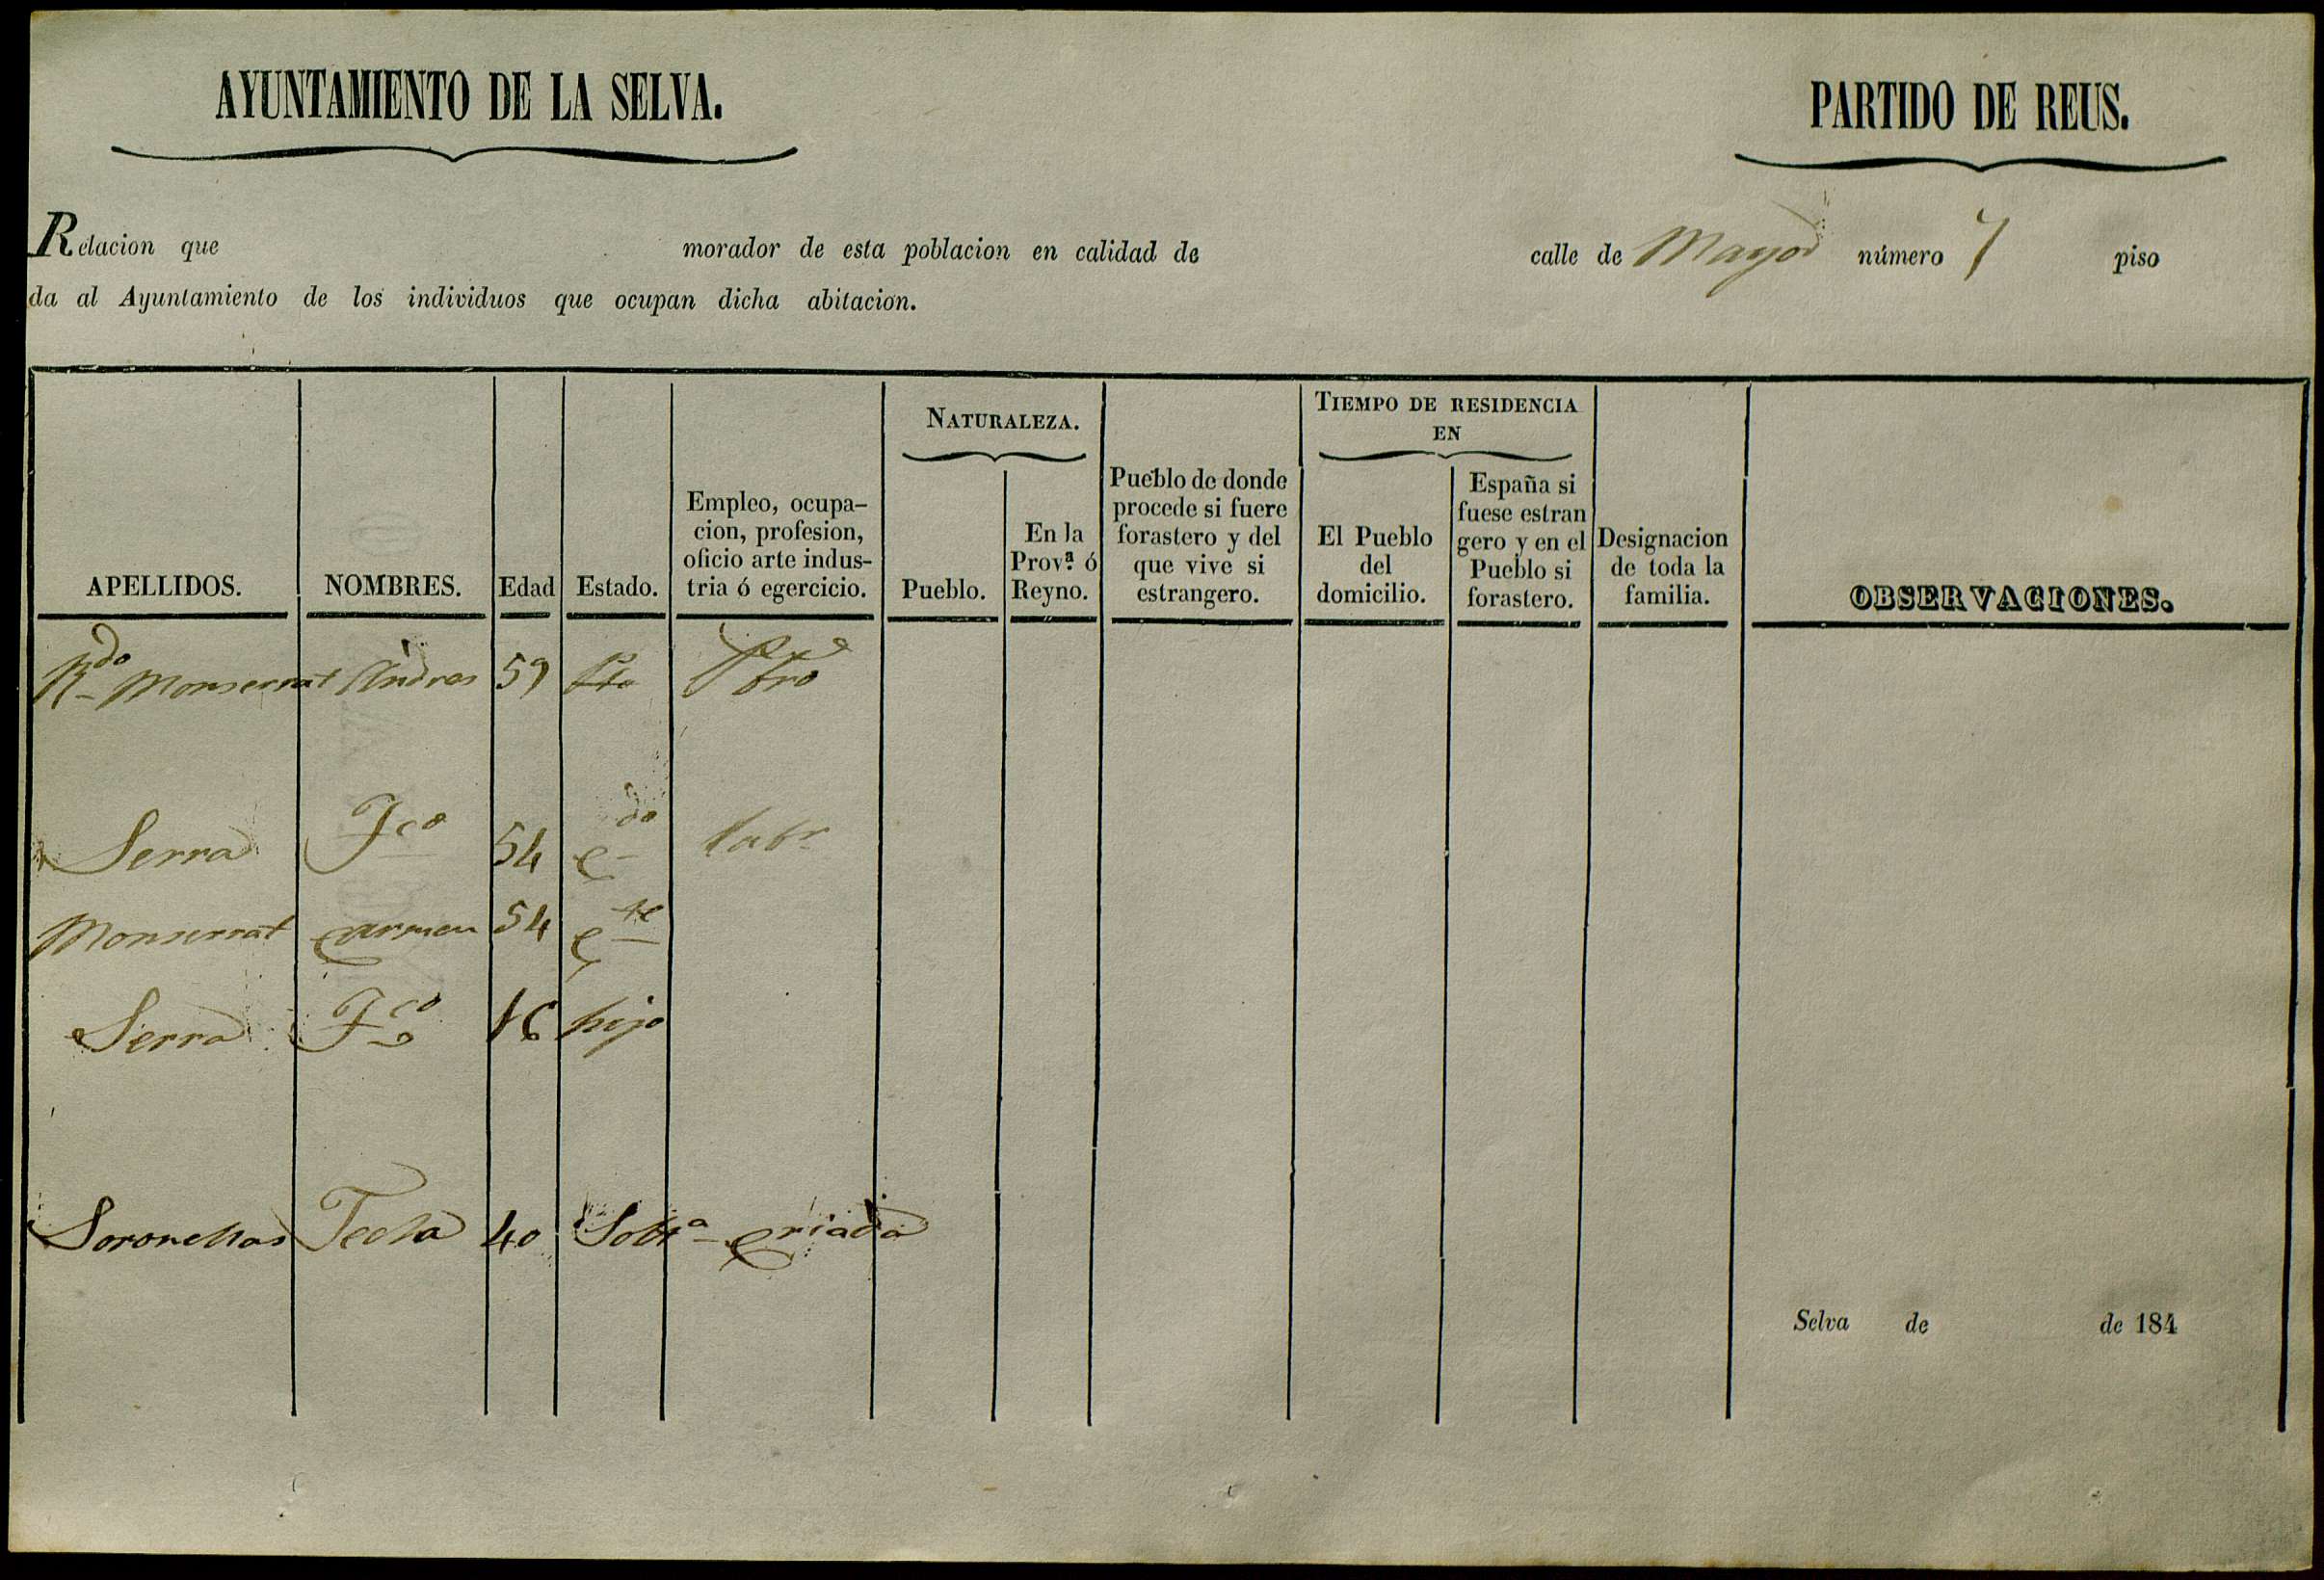 AYUNTAMIENTO DE LA SELVA.
PARTIDO DE REUS.
Relacion que morador de esta poblacion en calidad de calle de Mayor número 7 piso
da al Ayuntamiento de los individuos que ocupan dicha abitacion.
APELLIDOS.
NOMBRES.
Edad
Estado.
Empleo, ocupa-
cion, profesion,
oficio arte indus-
tria ó egercicio.
NATURALEZA.
Pueblo.
En la
Prov.ª ó
Reyno.
Pueblo de donde
procede si fuere
forastero y del
que vive si
estrangero.
TIEMPO DE RESIDENCIA
EN
El Pueblo
del
domicilio.
España si
fuese estran
gero y en el
Pueblo si
forastero.
Designacion
de toda la
familia.
OBSERVACIONES.
Rdo Monserrat Andres 59 Pbro
Serra Fco 54 cdo labr
Monserrat Carmen 54 cte
Serra Fco 16 hijo
Soronellas Tecla 40 Solta criada
Selva de de 184